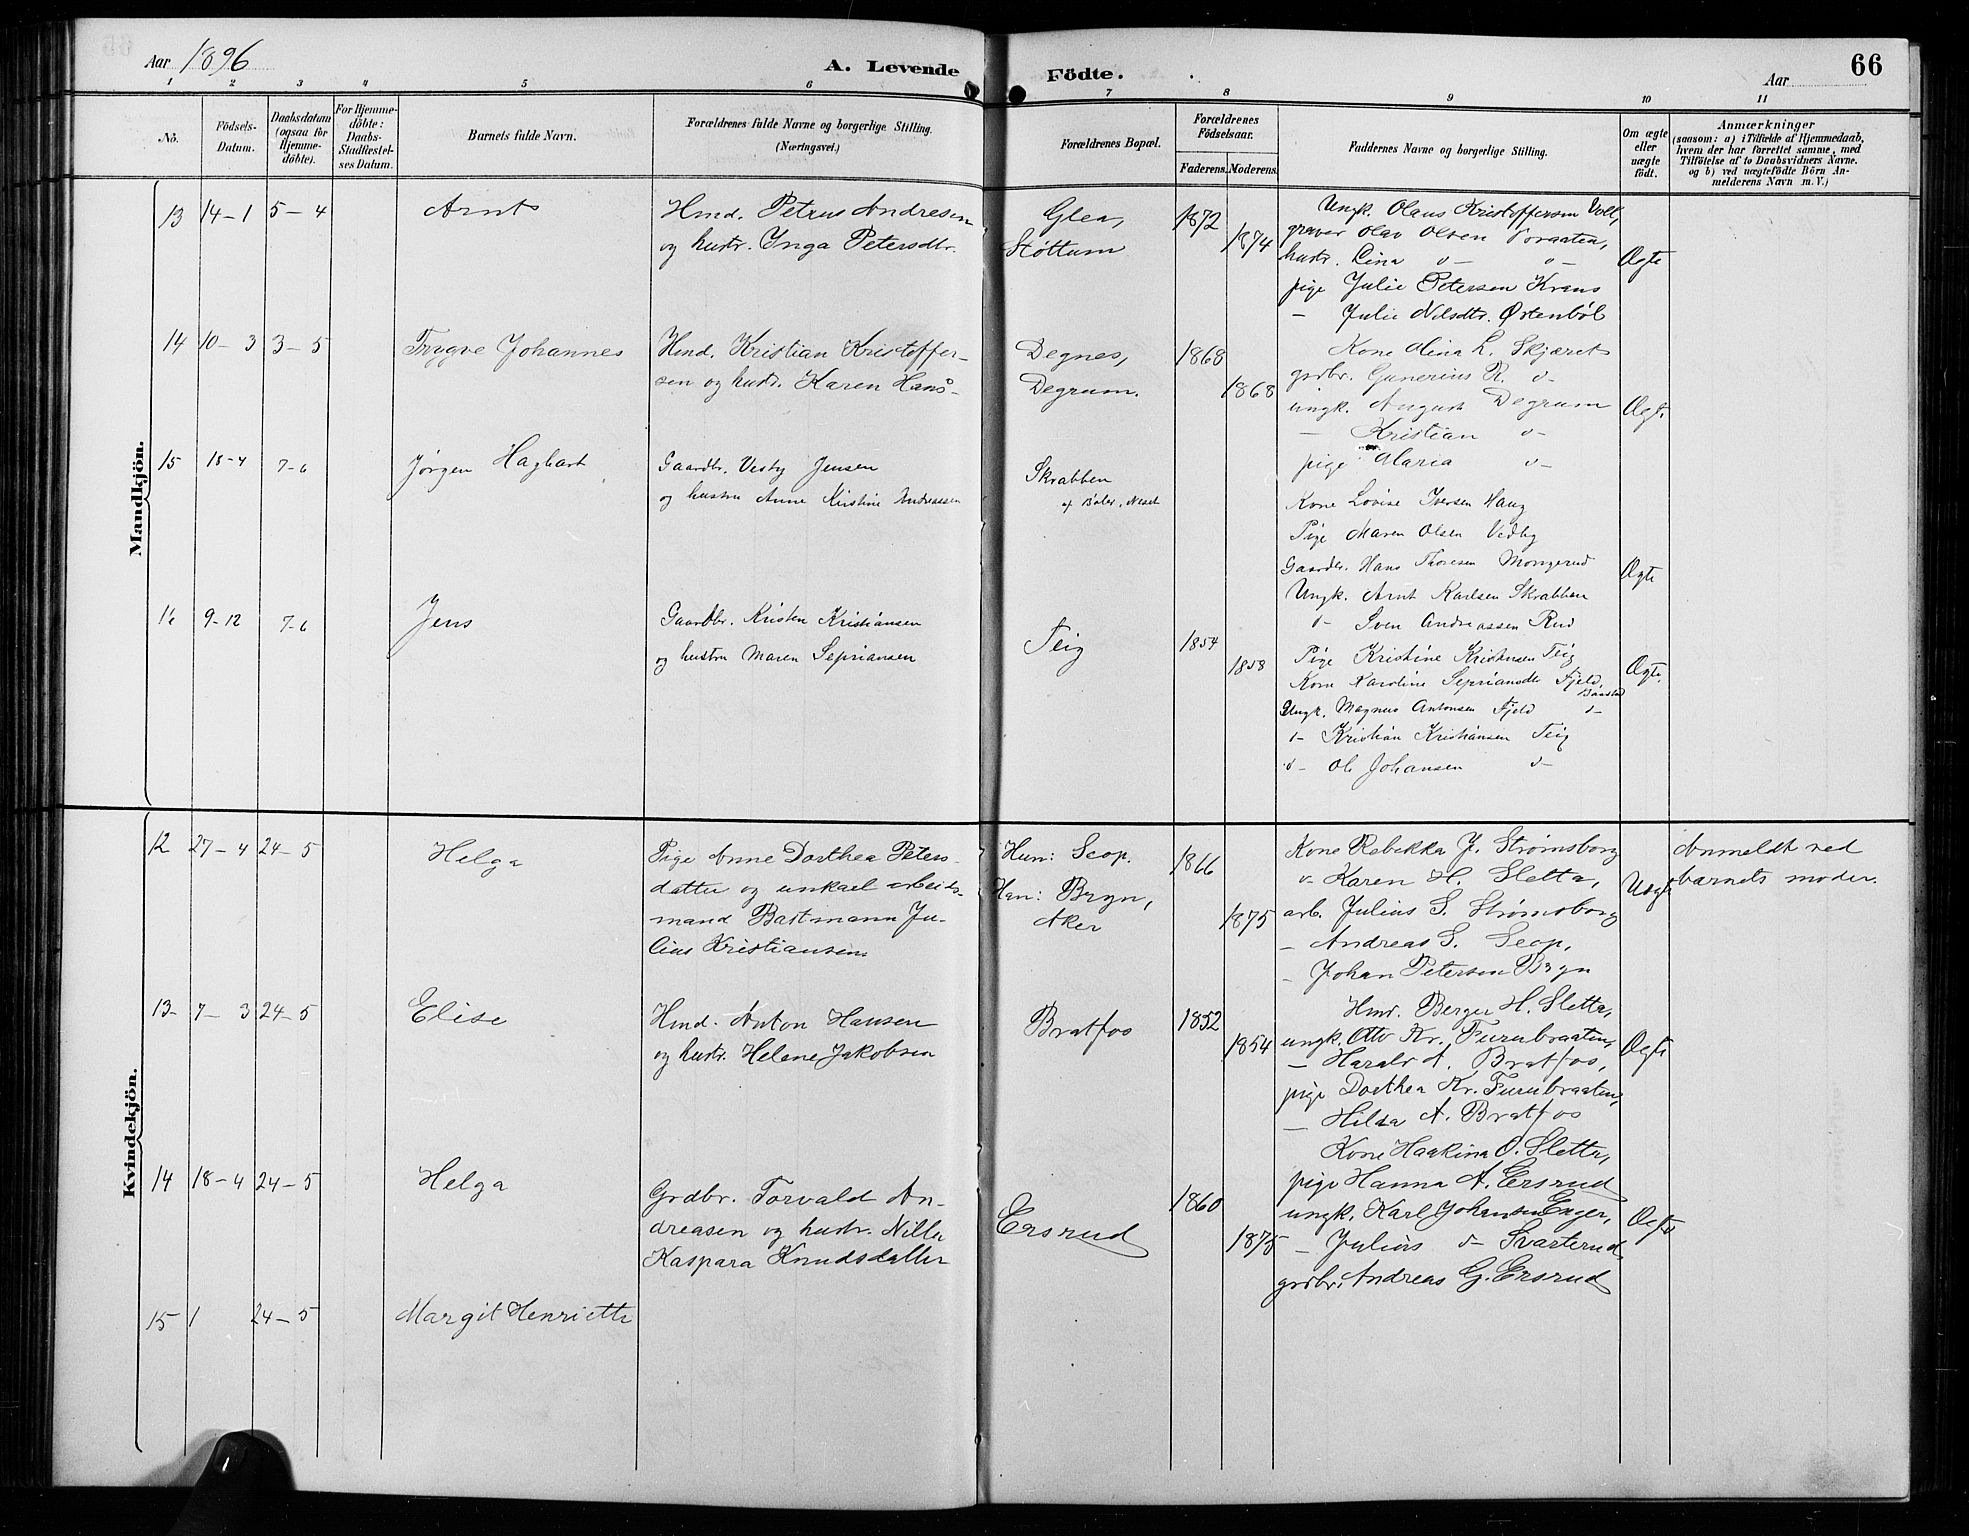 Aar 1896
A. Levende Födte.
Aar
66
1 2 3 4 5 6 7 8 9 10 11
No.
Födsels-Datum.
Daabsdatum (ogsaa for Hjemmedöbte).
For Hjemmedöbte: Daabs-Stadfestelses Datum.
Barnets fulde Navn.
Forældrenes fulde Navne og borgerlige Stilling. (Næringsvei.)
Forældrenes Bopæl.
Forældrenes Födselsaar.
Faderens. Moderens.
Faddernes Navne og borgerlige Stilling.
Om ægte eller uægte födt.
Anmærkninger
(saasom: a) i Tilfælde af Hjemmedaab,
hvem der har forrettet samme, med
Tilföielse af to Daabsvidners Navne.
og b) ved uægtefödte Börn Anmelderens Navn m. V.)
Mandkjön.
13 14-1 5-4 Arnt
Hmd. Petrus Andresen
og hustr. Inga Petersdtr.
Glea,
Støttum
1872
1874
Ungk. Olaus Kristoffersen Voll,
graver Olav Olsen
hustr. Lina " "
pige Julie Petersen Krans
- Julie Nilsdtr. Østenböl
Ægte
14 10-3 3-5 Trygve Johannes
Hmd. Kristian Kristoffer-
sen og hustr. Karen Hans-
Degnes,
Degrum.
1868
1868
Kone Mina L. Skjæret
grdbr. Gunerius R. d-
ungk. August Degrum
- Kristian d-
pige Maria d-
Ægt.
15 18-4 7-6 Jørgen Hagbart
Gaardbr. Vesty Jensen
og hustru Anne Kristine Andreassen
Skrabben
af Bøler, Neset
Kone Lovise Iversen Haug
Pige Maren Olsen Vedby
Gaardbr. Hans Thoresen Mongerud
Ungk. Arnt Karlsen Skrabben
d- Sven Andreassen Rud
Ægte
16 9-12 7-6 Jens
Gaardbr. Kristen Kristiansen
og hustru Maren Sepriansen
Teig
1854
1858
Pige Kristine Kristensen Teig
Kone Karoline Sepriansdtr Fjeld,
Baastad
Ungk. Magnus Antonsen Fjeld d-
d- Kristian Kristiansen Teig
d- Ole Johansen d-
Ægte
Kvindekjön.
12 27-4 24-5 Helga
Pige Anne Dorthea Peters-
datter og unkael arbeids-
mand Bastmann Ju-
lius Kristiansen
Hun: Scop.
Han: Bryn,
Aker
1866
1875
Kone Rebekka J. Strømsborg
d- Karen H. Sletta,
arb. Julius S. Strømsborg
- Andreas S. Scop,
- Johan Petersen Bryn
Uægte
Anmeldt ved
barnets moder.
13- 7-3 24-5 Elise
Hmd. Anton Hansen
og hustr. Helene Jakobsen
Bratfos
1852
1854
Hmd. Berger H. Sletta,
ungk. Otto Kr. Furubraaten,
- Harald A. Bratfos,
pige Dorthea Kr. Furubraaten,
- Hilda A. Bratfos
Ægte
14 18-4 24-5 Helga
Grdbr. Torvald An-
dreasen og hustr. Nille
Kaspara Knudsdatter
Ersrud
1860
1875
Kone Haakina O. Sletta,
pige Hanna A. Ersrud
ungk. Karl Johansen Enger,
- Julius d- Svarterud
grdbr. Andreas G. Ersrud
Ægte
15 1 24-5 Margit Henriette